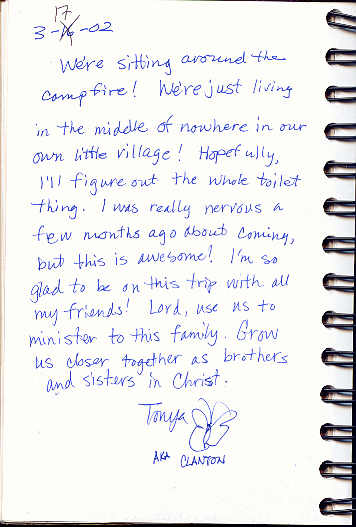 17
3-16-02
We're sitting around the
campfire! We're just living
in the middle of nowhere in our
own little village! Hopefully,
I'll figure out the whole toilet
thing. I was really nervous a
few months ago about coming,
but this is awesome! I'm so
glad to be on this trip with all
my friends! Lord, use us to
minister to this family. Grow
us closer together as brothers
and sisters in Christ.
Tonya
AKA CLANTON